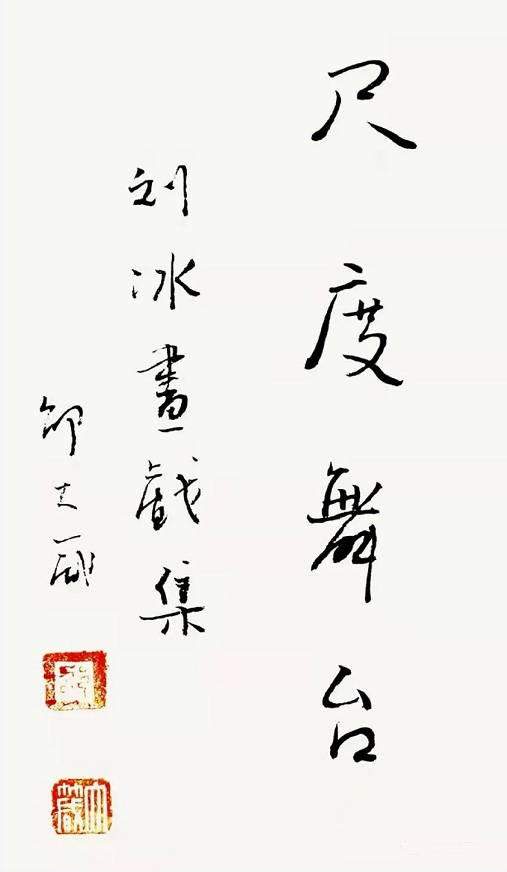 尺度舞台
刘冰畫戯集
邵大箴